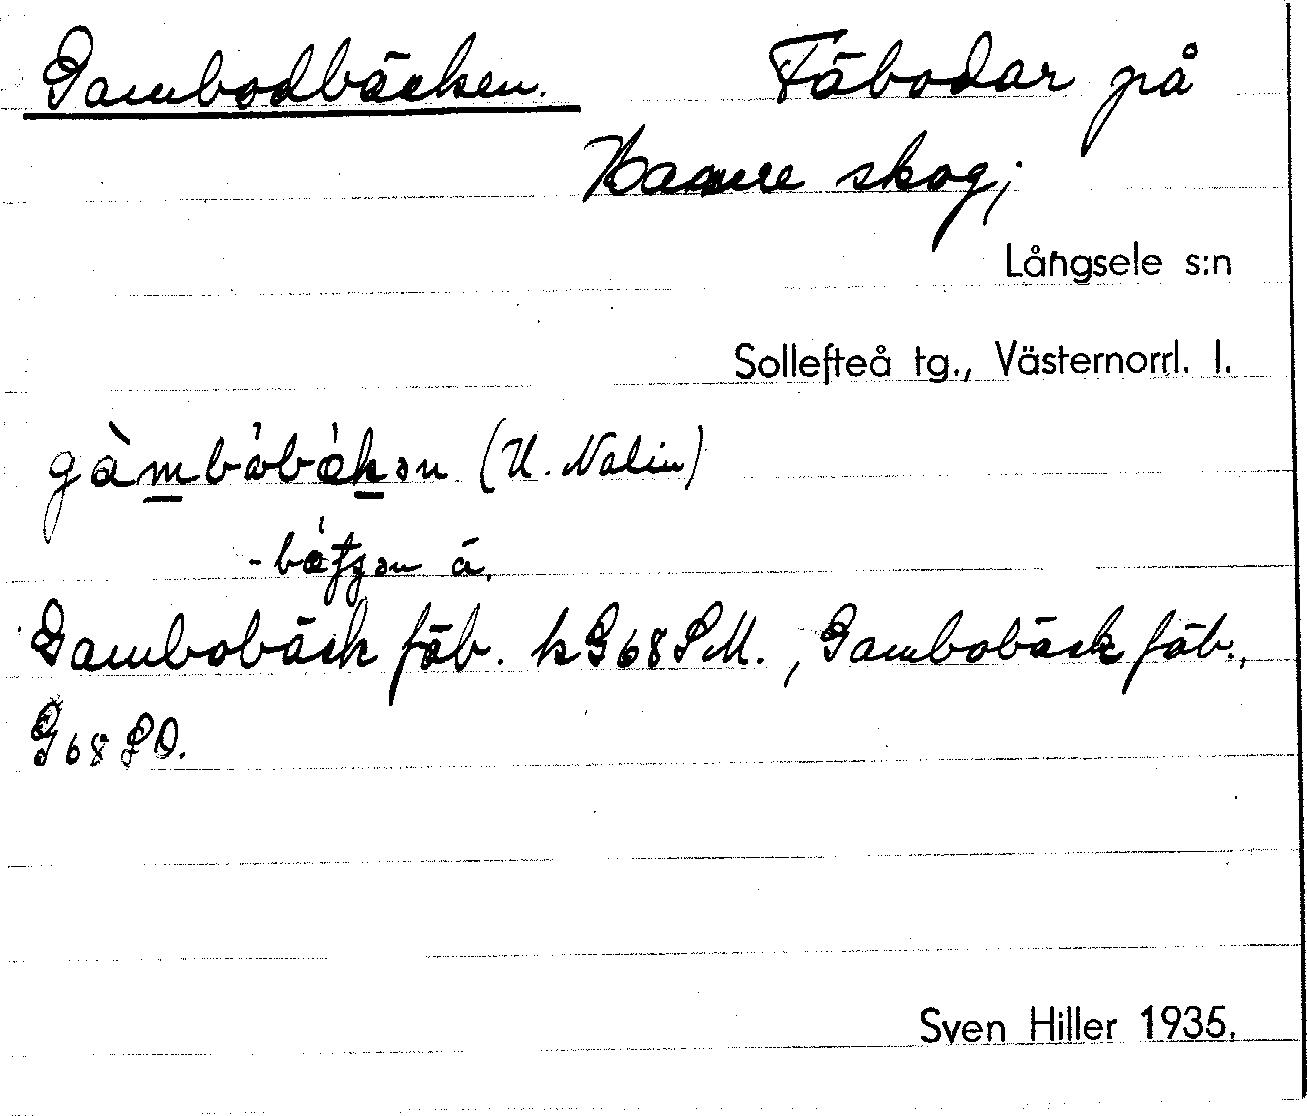 Gambodbäcken. Fäbodar på
Hamre skog;
Långsele s:n
Sollefteå tg., Västernorrl. l.
gàmbòbákən (U. Nalin)
- ä.
Gambobäck fäb. kG68SM., Gambobäck fäb.,
G68SO.
Sven Hiller 1935.